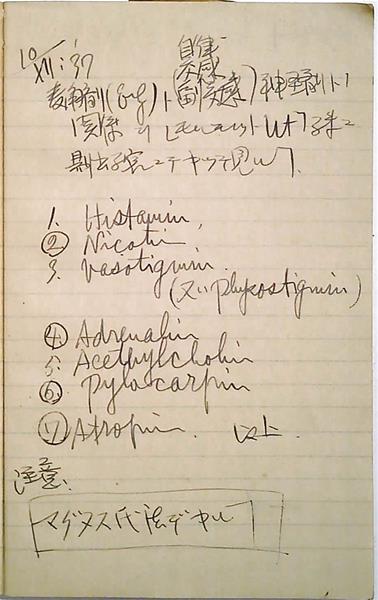 10/XII '37
自律
交感
麦角剤(Erg)ト(副交感)神経剤トノ
関係
剔出子宮ニテヤッテ見ル
1. Histamin,
② Nicotin
3. Vasotignin.
(又ハ Phycostignin)
④ Adrenalin
5. Acethylcholin
⑥ Pylocarpin
⑦ Atropin. 以上
注意.
マグヌス氏法デヤル